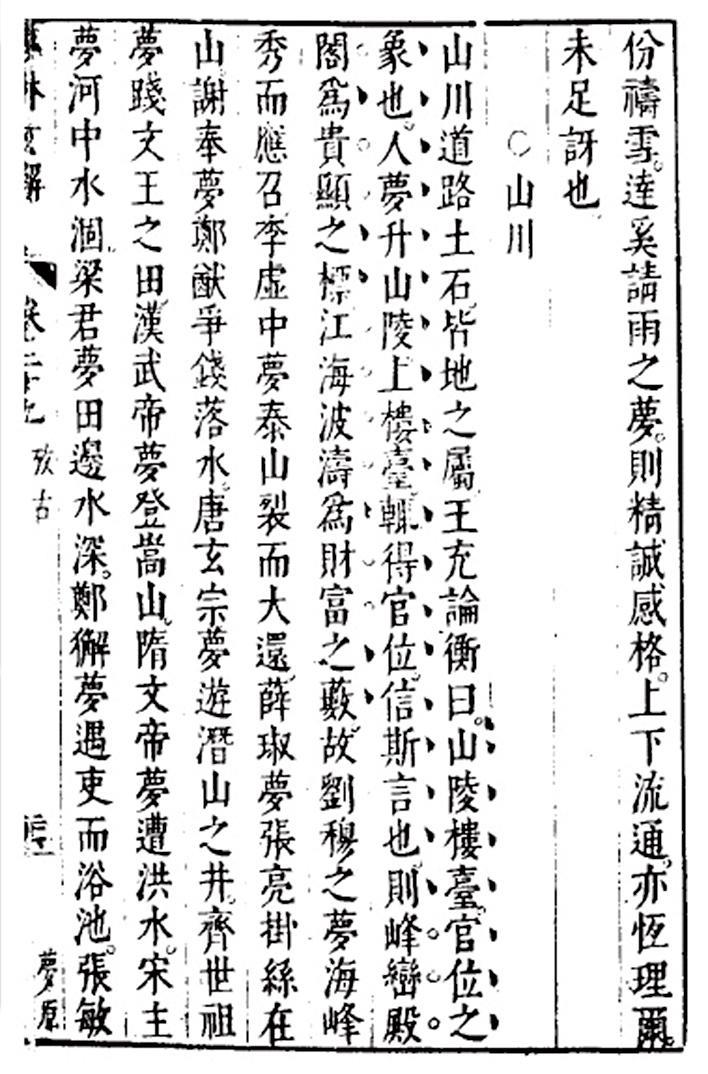 份禱雪。逹奚請雨之夢。則精誠感格。上下流通。亦恆理爾。
未足訝也
○山川
山川道路土石。皆地之屬。王充論衡曰。山陵樓臺。官位之
象也。人夢升山陵上樓臺。輒得官位。信斯言也。則峰巒殿
閣為貴顯之標。江海波濤為財富之藪。故劉穆之夢海峰
秀而應召。李虛中夢泰山裂而大還。薛琡夢張亮掛絲在
山。謝奉夢鄭猷爭錢落水。唐玄宗夢遊潛山之井。齊世祖
夢踐文王之田。漢武帝夢登嵩山。隋文帝夢遭洪水。宋主
夢河中水涸。梁君夢田邊水深。鄭獬夢遇吏而浴池。張敏
夢林玄解 卷二十九 攷古 夢原